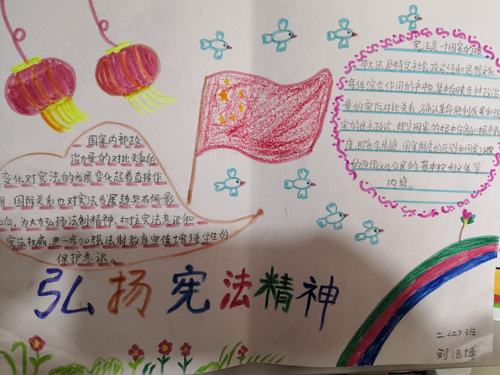 宪法是一个国家的根
本大法,是特定社会政治经济和思想文化
条件综合作用的产物,集中反映各种政治力
量的实际对比关系,确认革命胜利成果和现
实的民主政治,规定国家的根本任务和根本制
度,即社会制度、国家制度的原则和国家政权
的组织以及公民的基本权利义务等
内容。
国家内部政
治力量的对比关系的
变化对宪法的发展变化起着直接作
用,国际关系也对宪法发展趋势有所影
响,为大力弘扬法制精神,树立宪法意识和
宪法权威,进一步加强法制教育宣传增强学生的
保护意识。
弘扬宪法精神
二(二)班
刘洺博